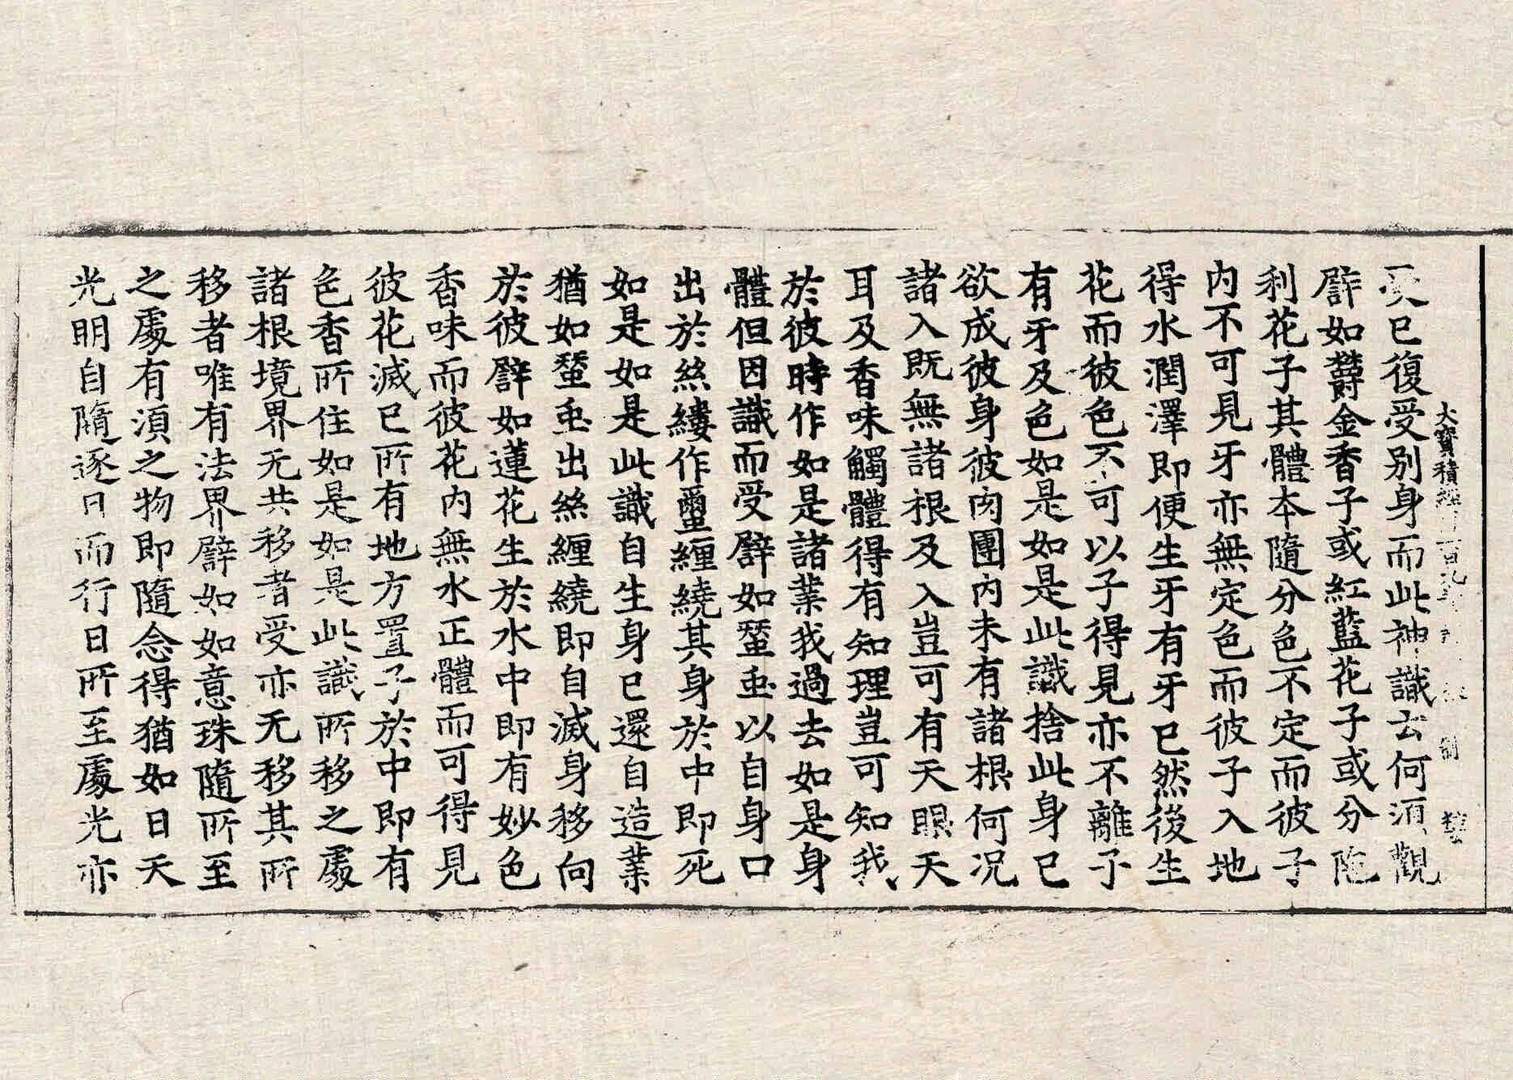 大寶積經
受已復受別身而此神識云何須觀
譬如鬱金香子或紅藍花子或分陁
利花子其體本隨分色不定而彼子
内不可見牙亦無定色而彼子入地
得水潤澤即便生牙有牙已然後生
花而彼色不可以子得見亦不離子
有牙及色如是如是此識捨此身已
欲成彼身彼肉團内未有諸根何況
諸入既無諸根及入豈可有天眼天
耳及香味觸體得有知理豈可知我
於彼時作如是諸業我過去如是身
體但因識而受譬如蝅䖝以自身口
出於絲縷作蠒纏繞其身於中即死
如是如是此識自生身已還自造業
猶如蝅䖝出絲纏繞即自滅身移向
於彼譬如蓮花生於水中即有妙色
香味而彼花内無水正體而可得見
彼花滅已所有地方置子於中即有
色香所住如是如是此識所移之處
諸根境界无共移者受亦无移其所
移者唯有法界譬如如意珠隨所至
之處有須之物即隨念得猶如日天
光明自隨逐日而行日所至處光亦